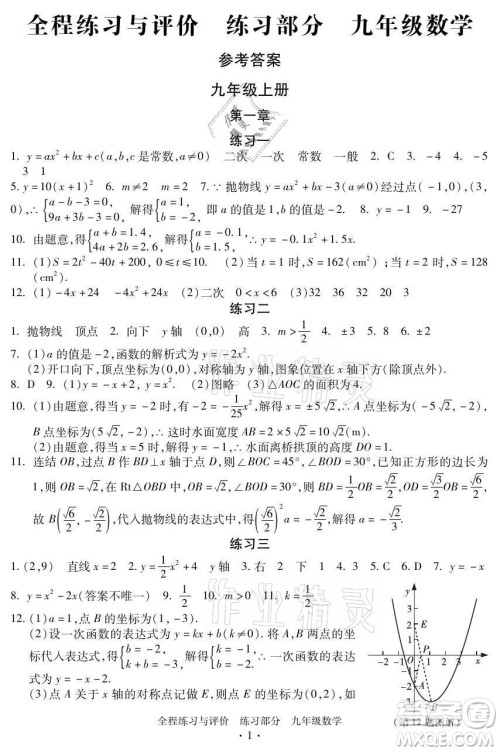 全程练习与评价　练习部分　九年级数学
参考答案
九年级上册
第一章
练习一
1. y=ax²+bx+c(a,b,c是常数,a≠0)　二次　一次　常数　一般　2. C　3. -4　4. -5
3　1
5. y=10(x+1)²　6. m≠2　m=2　7. ∵抛物线y=ax²+bx-3(a≠0)经过点(-1,0),(3,
0),∴{a-b-3=0, 9a+3b-3=0, 解得{a=1, b=-2, 即a的值是1,b的值是-2.　8. y　9. -27
10. 由题意,得{a+b=1.4, 4a+2b=2.6, 解得{a=-0.1, b=1.5. ∴y=-0.1x²+1.5x.
11. (1)S=2t²-20t+180, 0≤t≤10.　(2)当t=1时,S=162(m²);当t=2时,S=148(m²).
12. (1)-4x+24　-4x²+24x　(2)二次　0<x<6　(3)32　20　32
练习二
1. 抛物线　顶点　2. 向下　y轴　(0,0)　高　3. m>1/2　4. ±3　5. ±√2　6. D
7. (1)a的值为-2,函数的解析式为y=-2x².
(2)开口向下,顶点为(0,0),对称轴为y轴,图象位置在x轴下方(除顶点外).
8. D　9. (1)y=-x+2,y=x².　(2)图略　(3)△AOC的面积为4.
10. (1)由题意,得当y=-2时,-2=-1/25 x²,解得x=±5√2,∴A点坐标为(-5√2,-2),
B点坐标为(5√2,-2).∴此时水面宽度为AB=5√2+5√2=10√2.
(2)由题意,得D点坐标为(0,-1).∴水面离桥拱顶的高度DO=1.
11. 连结OB,过点B作BD⊥x轴于点D,则∠BOC=45°,∠BOD=30°.已知正方形的边长为
1,则OB=√2,在Rt△OBD中,OB=√2,∠BOD=30°,∴BD=1/2 OB=√2/2,OD=√6/2,
故B(√6/2,-√2/2),代入抛物线的表达式中,得(√6/2)²a=-√2/2,解得a=-√2/3.
练习三
1. (2,9)　直线x=2　2. 0　x=2　3. 右　2　下　1　4. 3　5. C　6. D　7. y=-x
8. y=x²-2x(答案不唯一)　9. 1/2　10. x>1/2　11. C
12. (1)a=1,点B的坐标为(-1,0).
(2)设一次函数的表达式为y=kx+b.将A,B两点的坐
标代入表达式,得{k+b=-2, -k+b=0, 解得{k=-1, b=-1, ∴一次函
数的表达式为y=-x-1.
(3)点C的坐标为(0,-2),点C关于x轴的对称点C′的坐
-4 -2 O 2 4 x
y
(第12题图解)
全程练习与评价　练习部分　九年级数学
· 1 ·
作业精灵
作业精灵